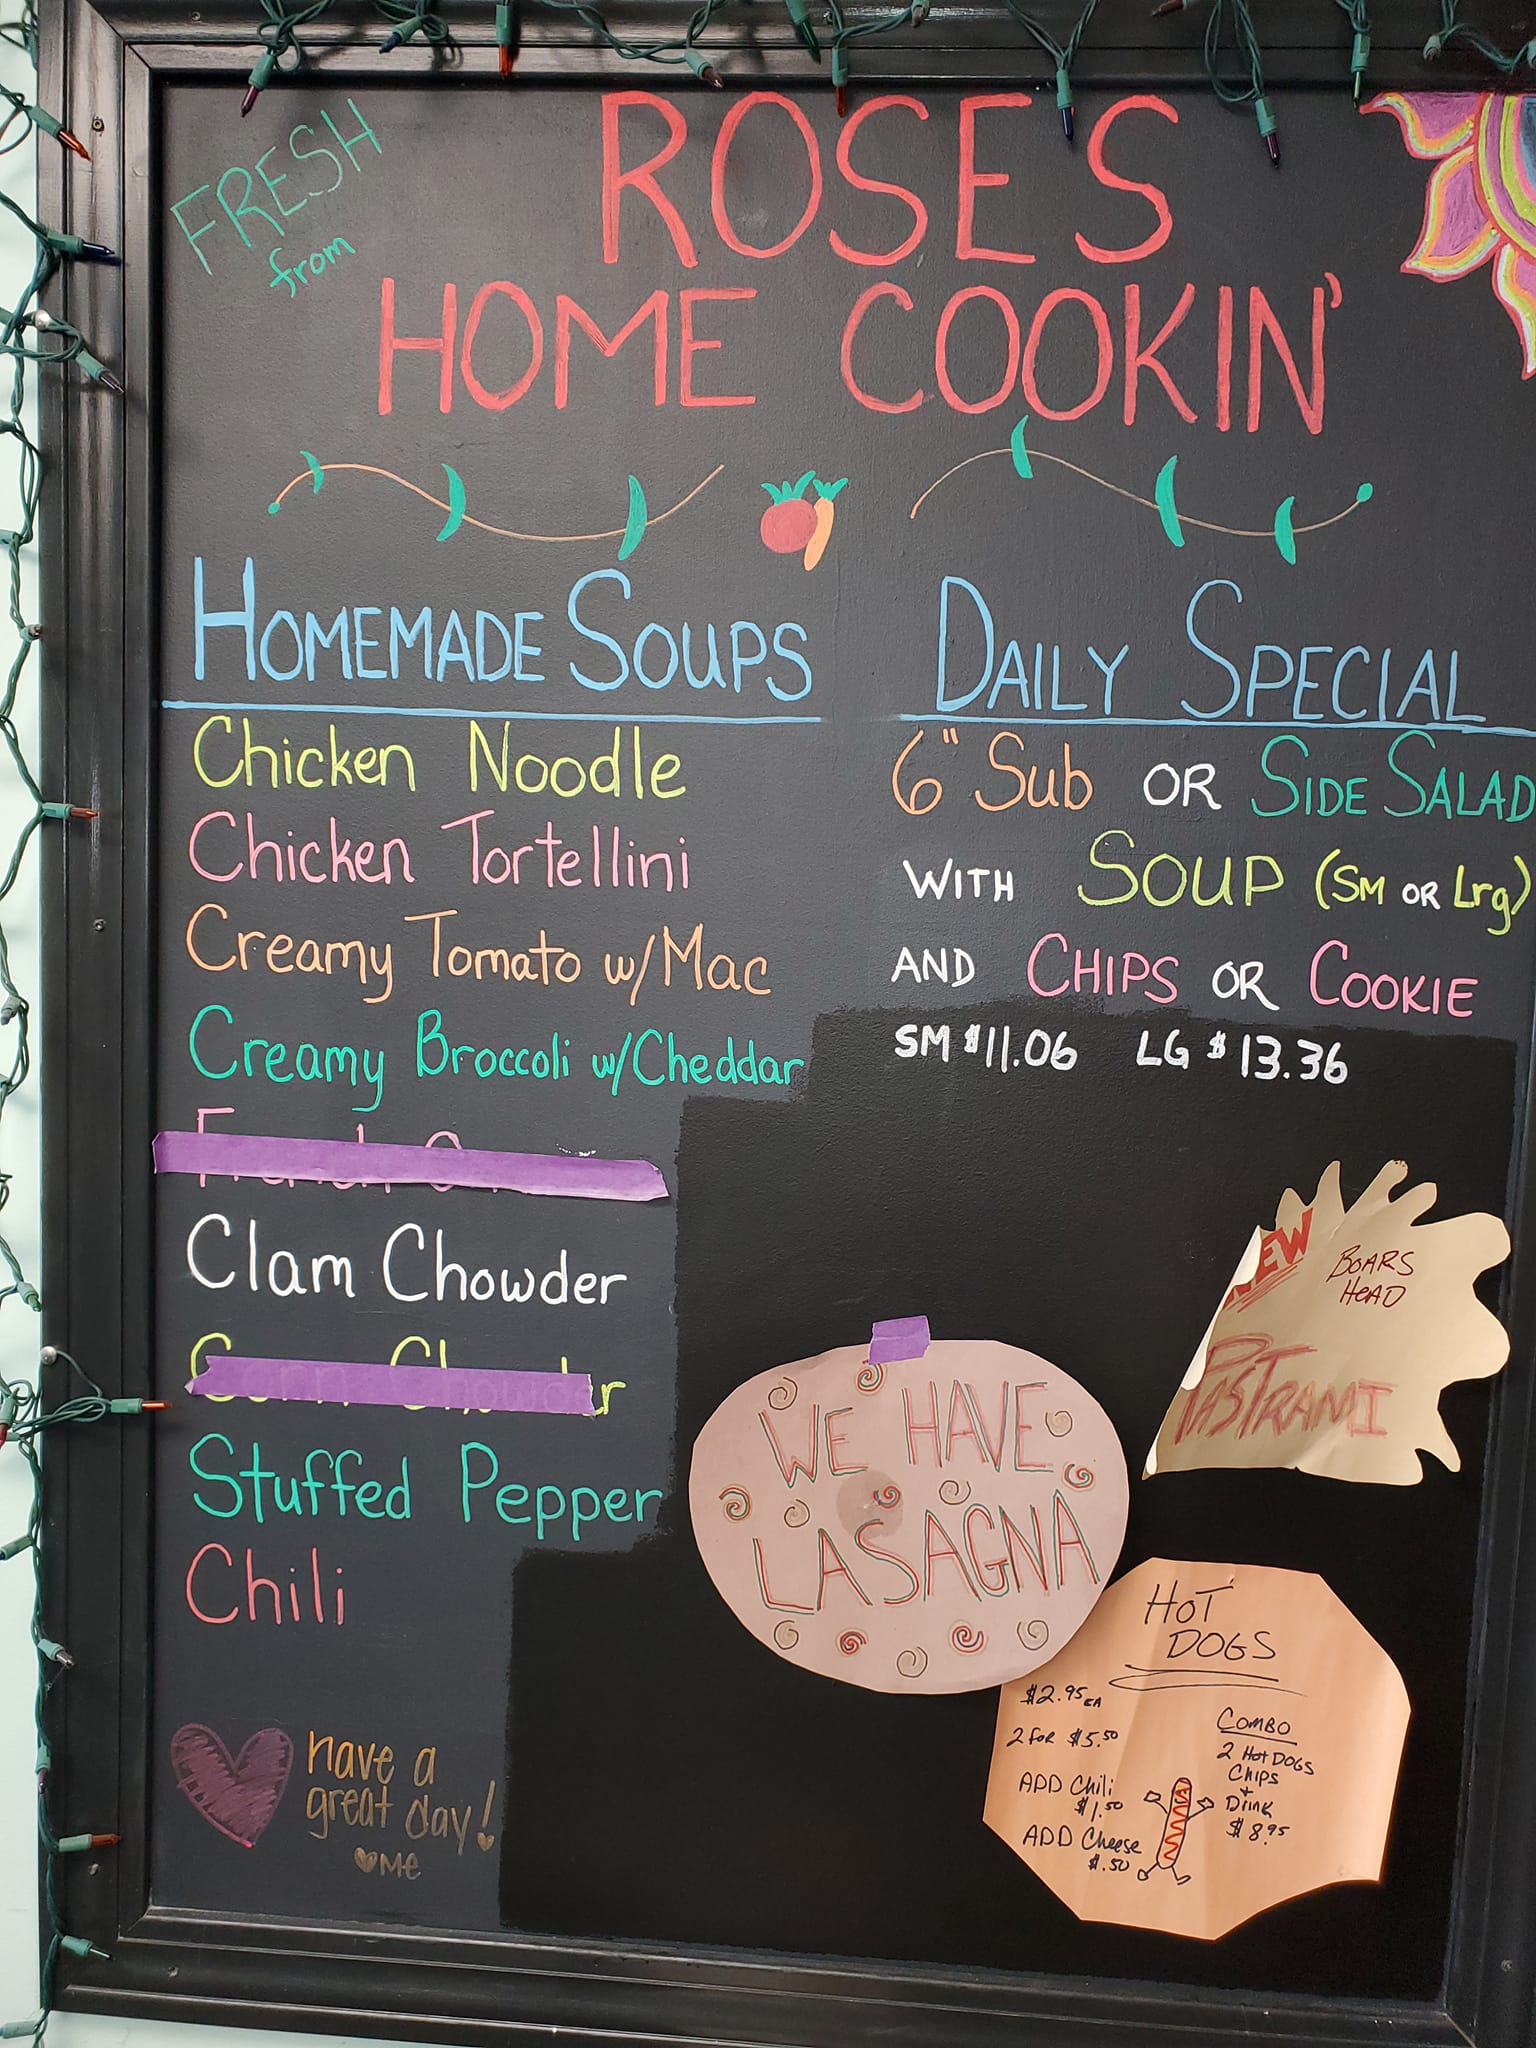 FRESH
from
ROSES
HOME COOKIN'
HOMEMADE SOUPS
Chicken Noodle
Chicken Tortellini
Creamy Tomato w/Mac
Creamy Broccoli w/Cheddar
Clam Chowder
Stuffed Pepper
Chili
have a
great day!
Me
DAILY SPECIAL
6" Sub OR SIDE SALAD
WITH SOUP (SM OR Lrg)
AND CHIPS OR COOKIE
SM $11.06 LG $13.36
BOARS
HEAD
PASTRAMI
WE HAVE
LASAGNA
HOT
DOGS
$2.95 EA
2 FOR $5.50
ADD Chili
$1.50
ADD Cheese
$.50
COMBO
2 Hot DOGS
CHIPS
+
Drink
$8.95